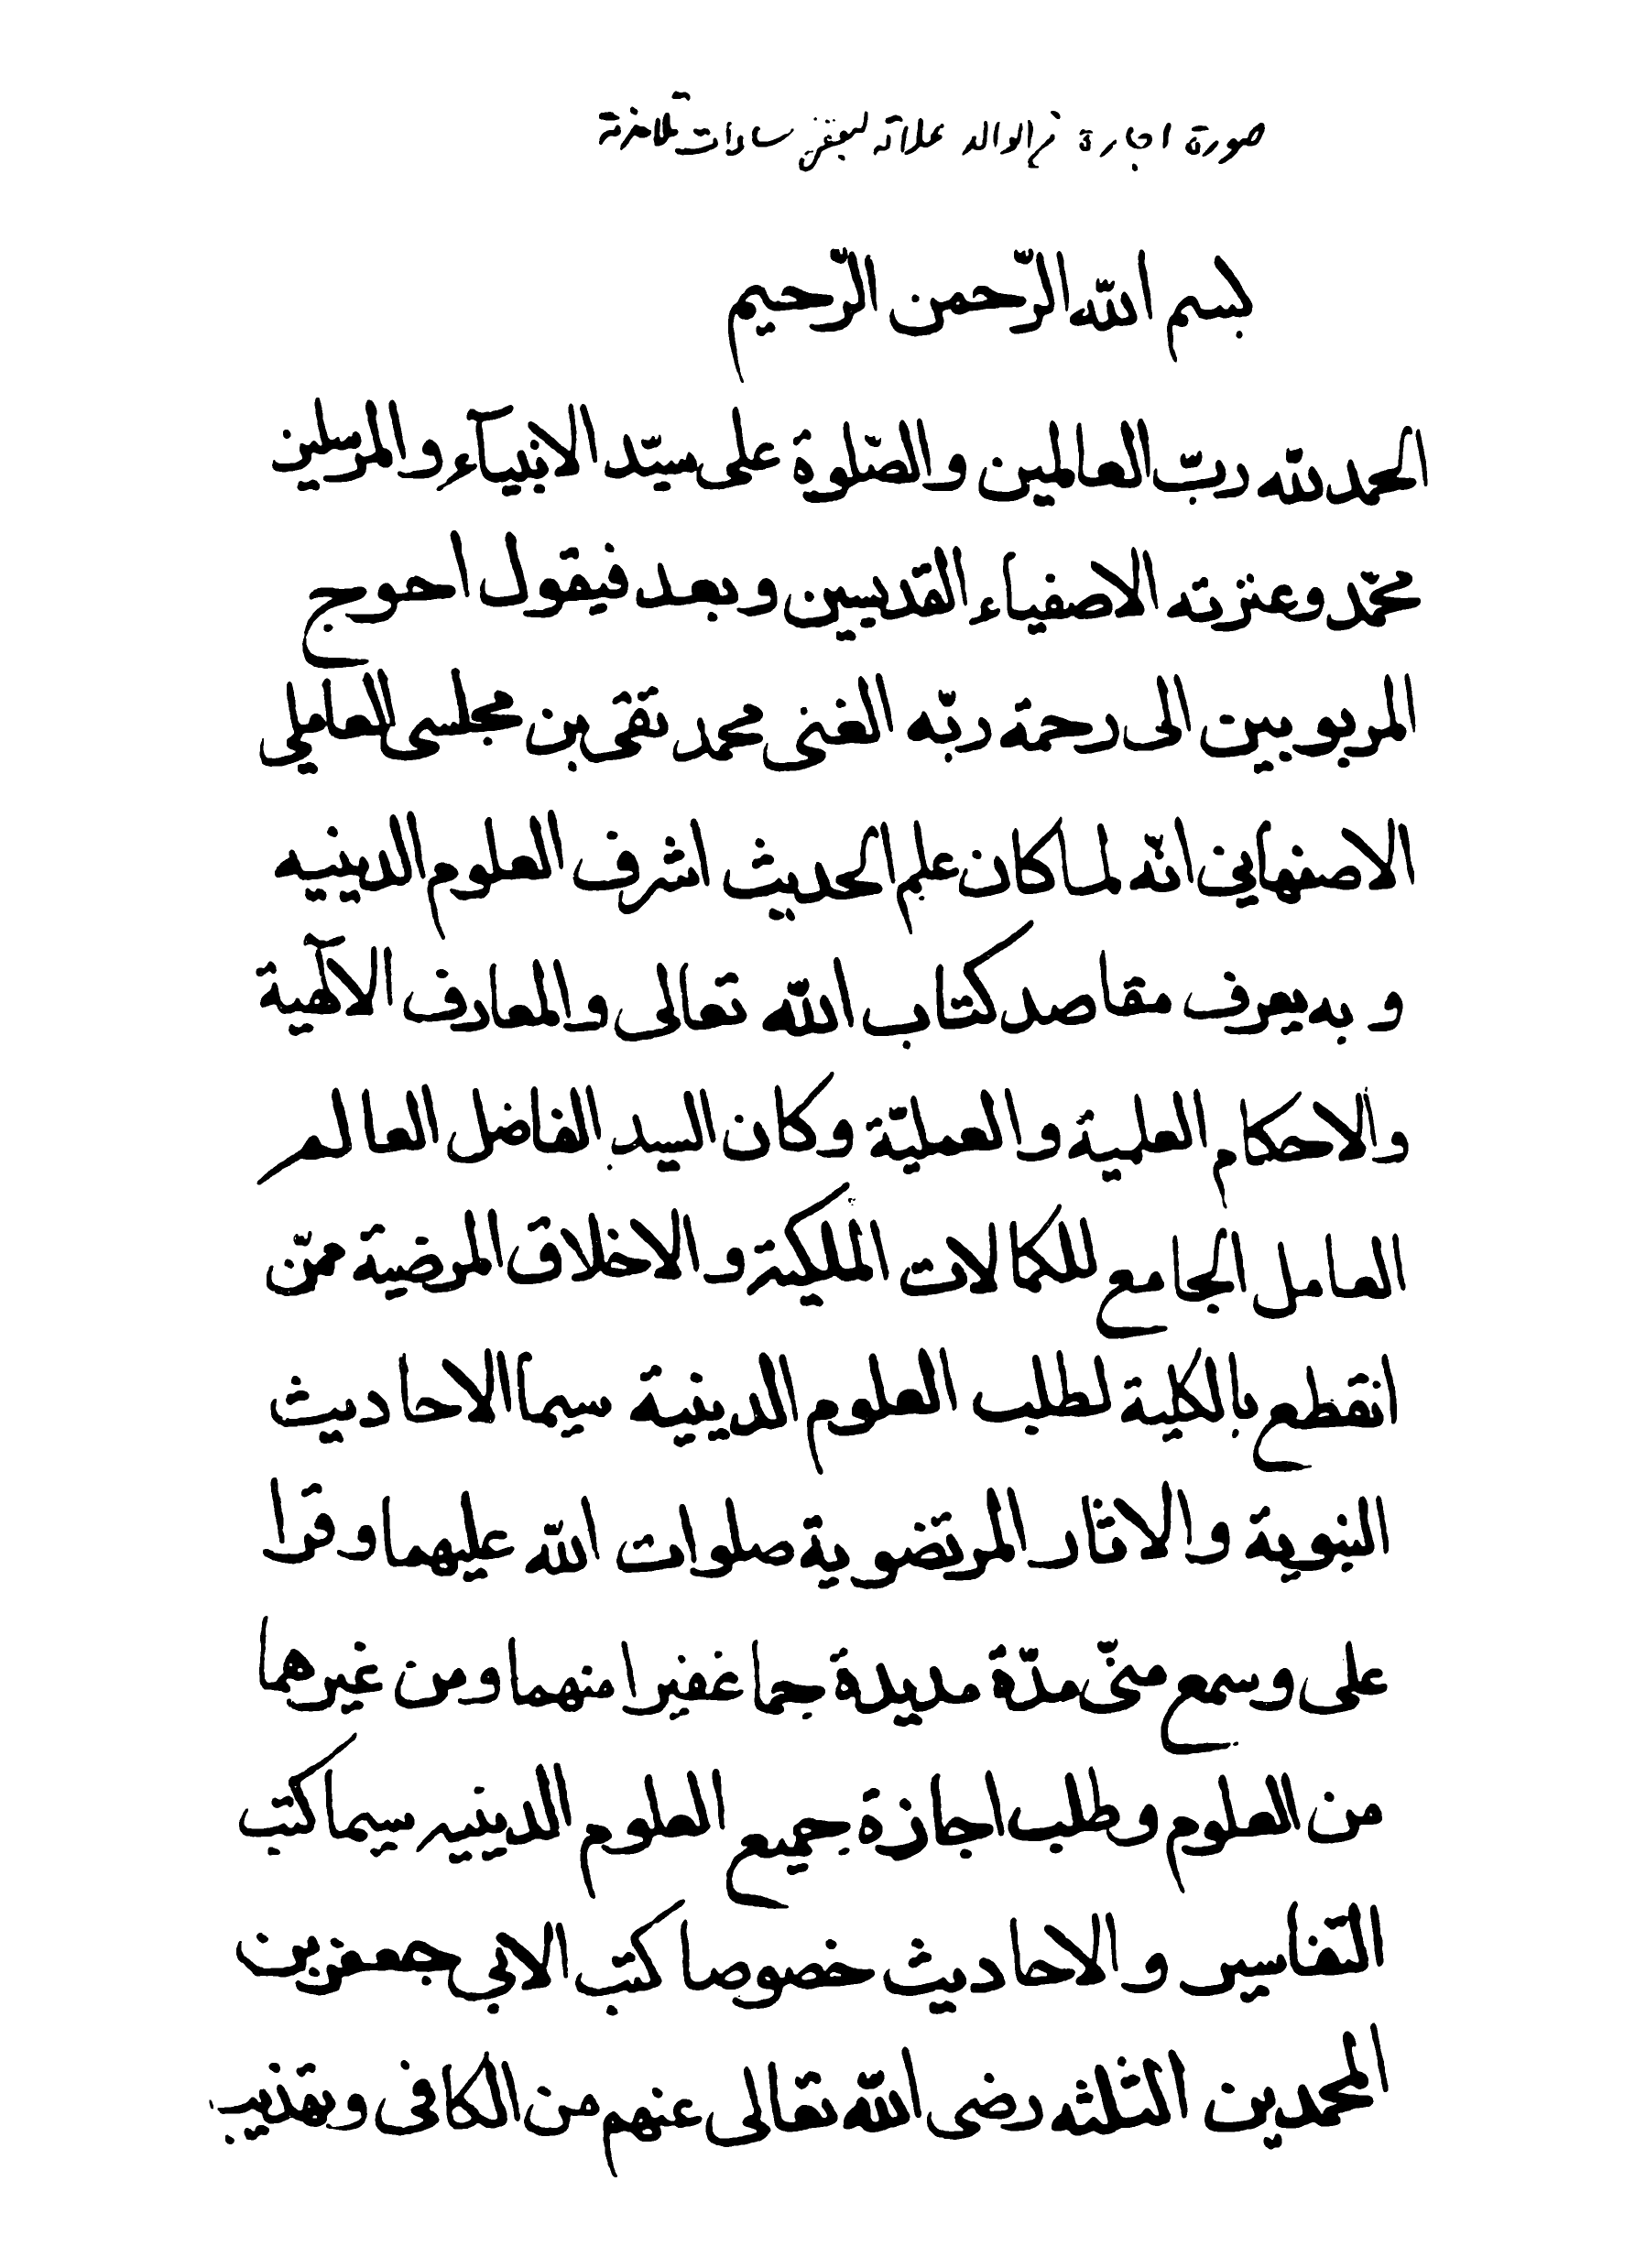 صورة اجازة من الوالد العلامة لبعض سادات تلامذته
بسم الله الرّحمن الرّحيم
الحمد لله ربّ العالمين والصّلوة على سيّد الانبيآء والمرسلين
محمّد وعترته الاصفياء القديسين وبعد فيقول احوج
المربوبين الى رحمة ربّه الغنى محمد تقى بن مجلسى العاملي
الاصفهاني انّه لما كان علم الحديث اشرف العلوم الدينيه
و به يعرف مقاصد كتاب الله تعالى والمعارف الالٓهية
والاحكام العلمية والعمليّة وكان السيد الفاضل العالم
العامل الجامع للكمالات الملكية والاخلاق المرضية ممّن
انقطع بالكلية لطلب العلوم الدينية سيما الاحاديث
النبوية والاثار المرتضوية صلوات الله عليهما وقرا
على وسمع منّى مدّة مديدة جما غفيرا منهما ومن غيرهما
من العلوم وطلب اجازة جميع العلوم الدينيه سيما كتب
التفاسير والاحاديث خصوصا كتب الابي جعفرين
المحمدين الثلثه رضى الله تعالى عنهم من الكافى وتهذيب